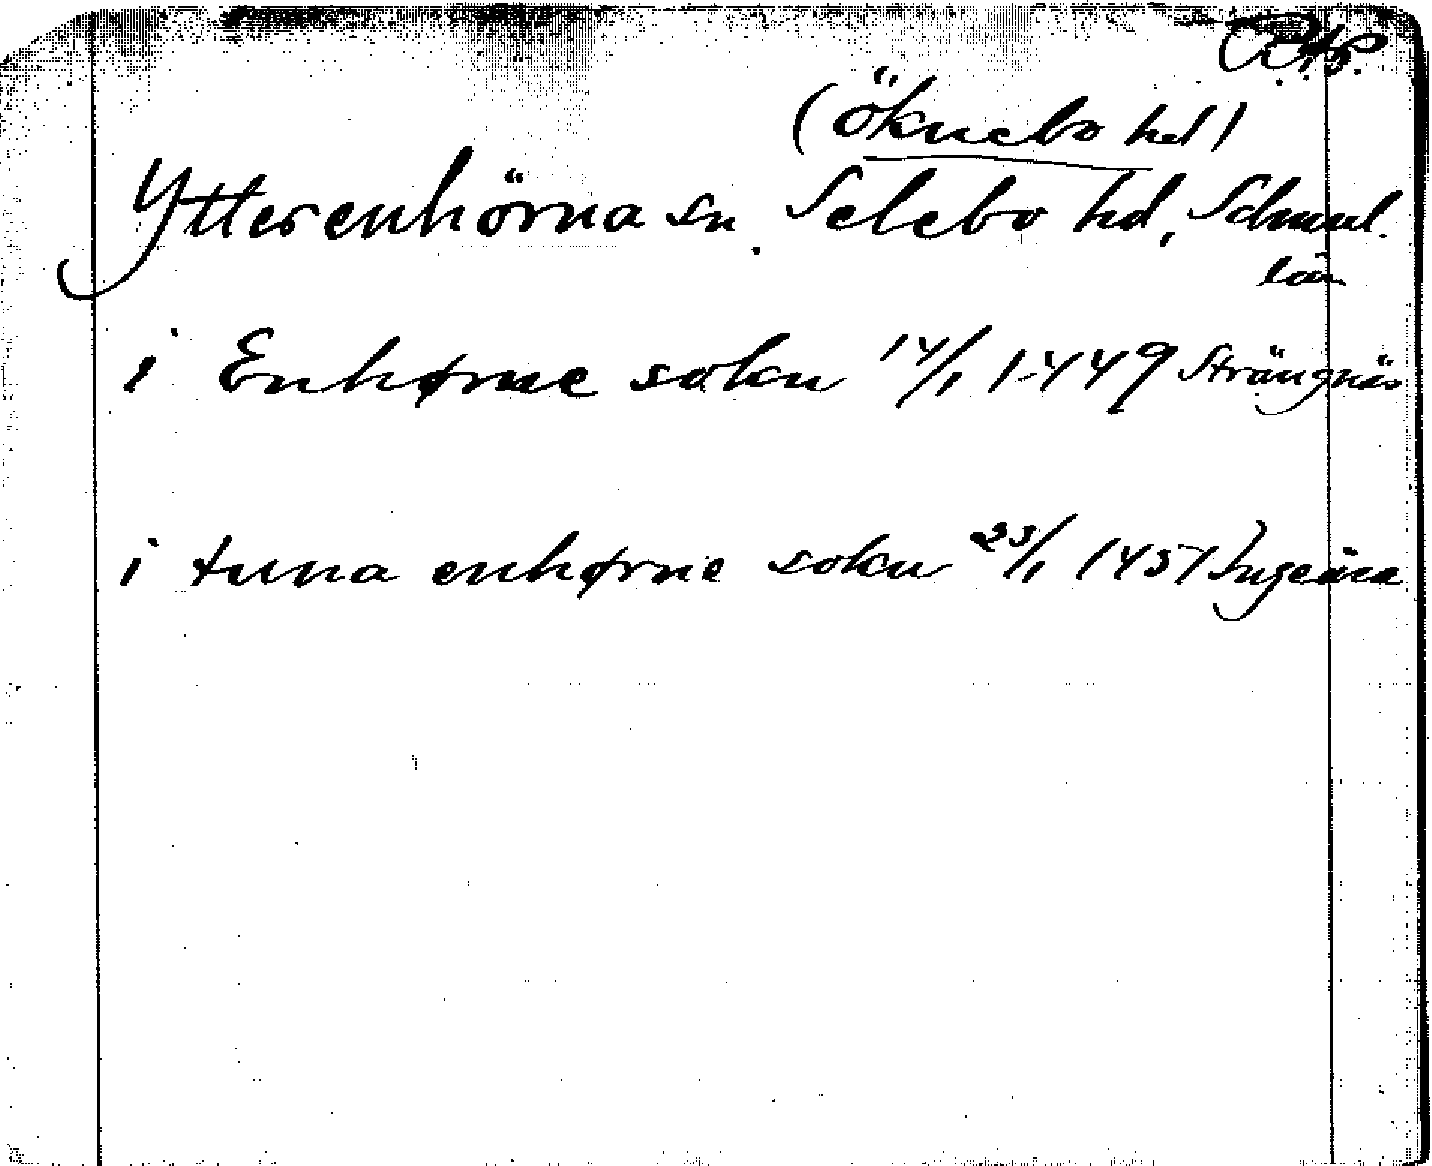 (Öknebo hd)
Ytterenhörna sn. Selebo hd, Sdmnl.
län
i Enhørne sokn 14/1 1449 Strängnäs
i tuna enhørne sokn 23/1 1457